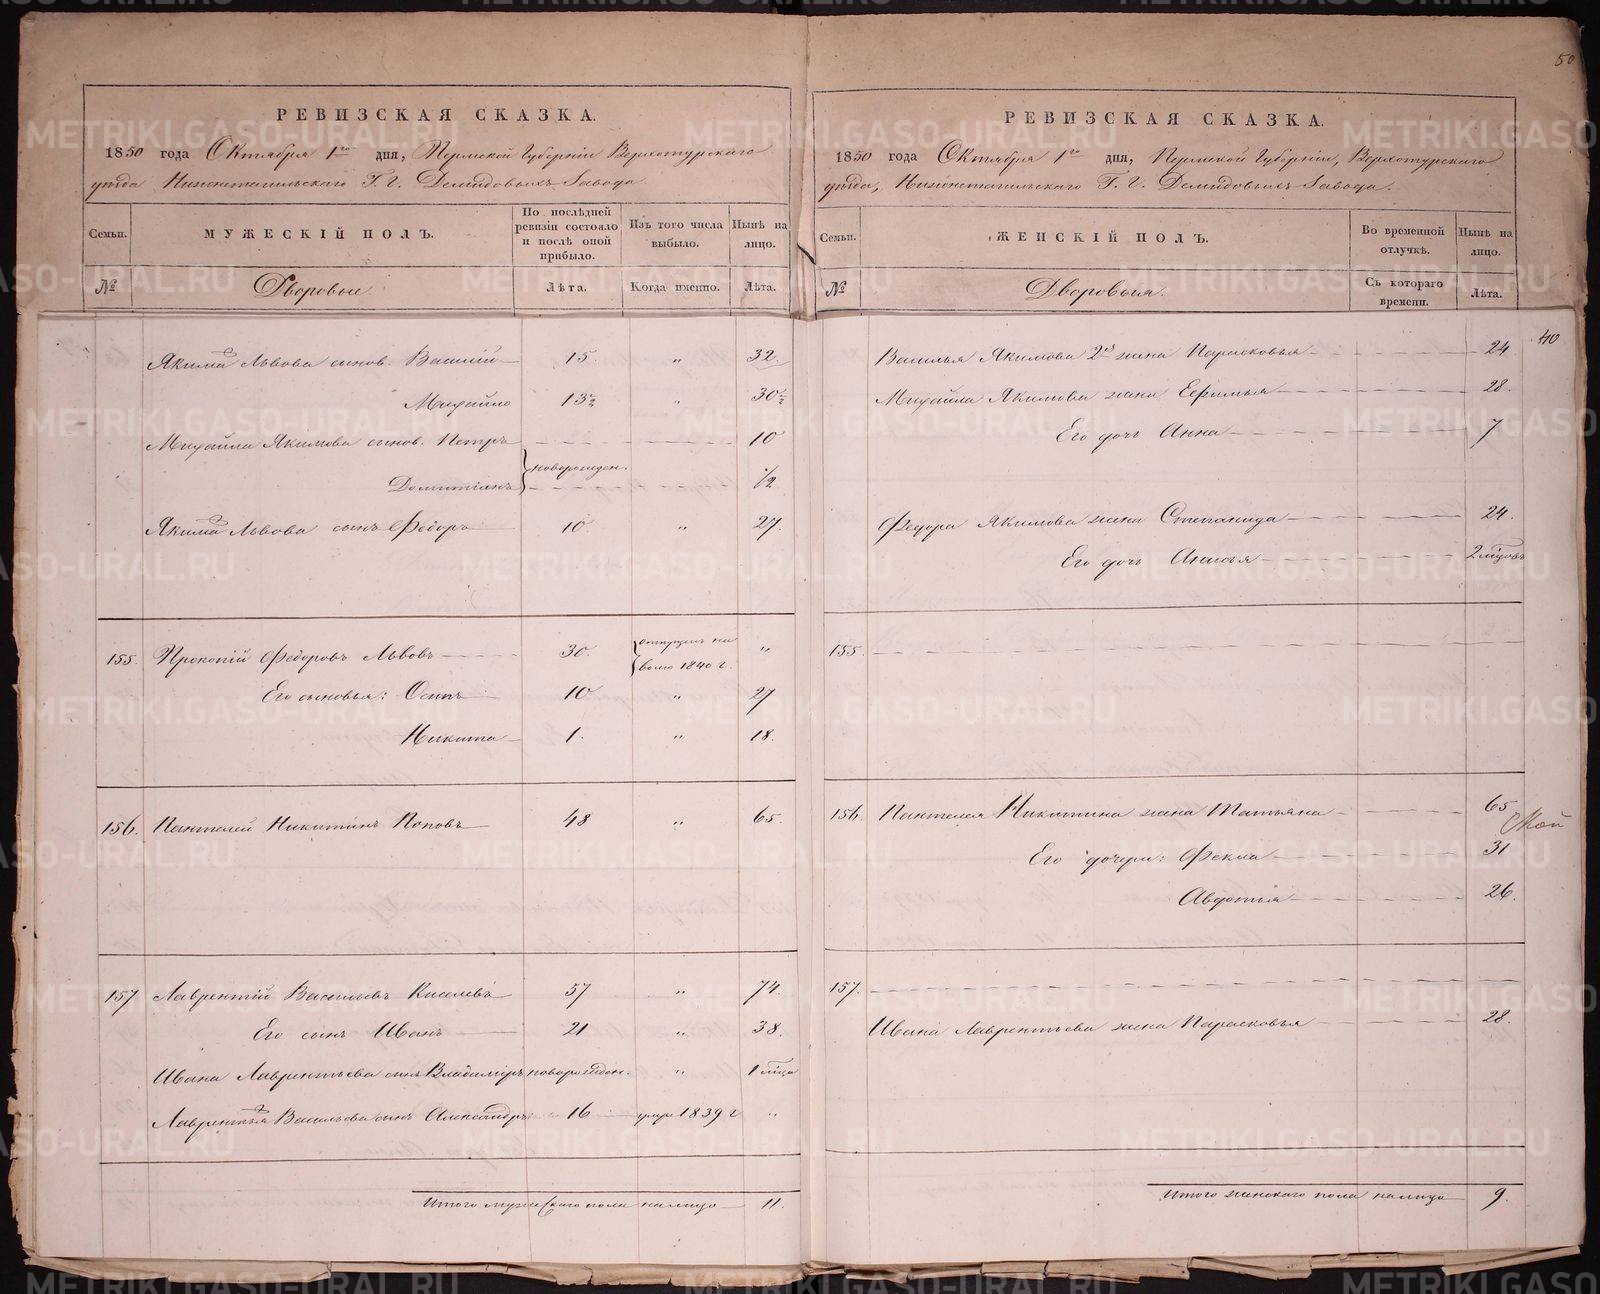 50
РЕВИЗСКАЯ СКАЗКА.
1850 года Октября 1го дня, Пермской Губернiи Верхотурскаго
уѣзда Нижнетагильскаго Г. г. Демидовыхъ Завода.
Семьи. МУЖЕСКIЙ ПОЛЪ. По послѣдней ревизiи состояло и послѣ оной прибыло. Изъ того числа выбыло. Нынѣ на лицо.
№ Дворовые Лѣта. Когда именно. Лѣта.
Якима Львова сынов. Василiй 15. " 32.
Михайло 13½ " 30½
Михайла Якимова сынов. Петръ 10
Домитiанъ новорожден. ½
Якима Львова сынъ Федоръ 10 " 27.
155. Прокопiй Федоровъ Львовъ 30. отпущен на волю 1840 г. "
Его сыновья: Осипъ 10 " 27
Никита 1. " 18.
156. Пантелей Никитинъ Поповъ 48 " 65.
157. Лаврентiй Васильевъ Киселевъ 57 " 74.
Его сынъ Иванъ 21 " 38.
Ивана Лаврентьева сынъ Владимiръ новорожден. " 1 мѣсца
Лаврентья Васильева сынъ Александръ 16 умре 1839 г "
Итого мужескаго пола налицо 11.
РЕВИЗСКАЯ СКАЗКА.
1850 года Октября 1го дня, Пермской Губернiи, Верхотурскаго
уѣзда, Нижнетагильскаго Г. г. Демидовыхъ Завода.
Семьи. ЖЕНСКIЙ ПОЛЪ. Во временной отлучкѣ. Нынѣ на лицо.
№ Дворовыя. Съ котораго времени. Лѣта.
40
Василья Якимова 2я жена Парасковья 24
Михайла Якимова жена Ефимья 28.
Его дочь Анна 7
Федора Якимова жена Степанида 24.
Его дочь Анисья 2 мѣсцовъ
155.
156. Пантелея Никитина жена Татьяна 65
Его дочери: Фекла 31
Авдотья 26.
157.
Ивана Лаврентьева жена Парасковья 28.
Итого женскаго пола налицо 9.
METRIKI.GASO-URAL.RU